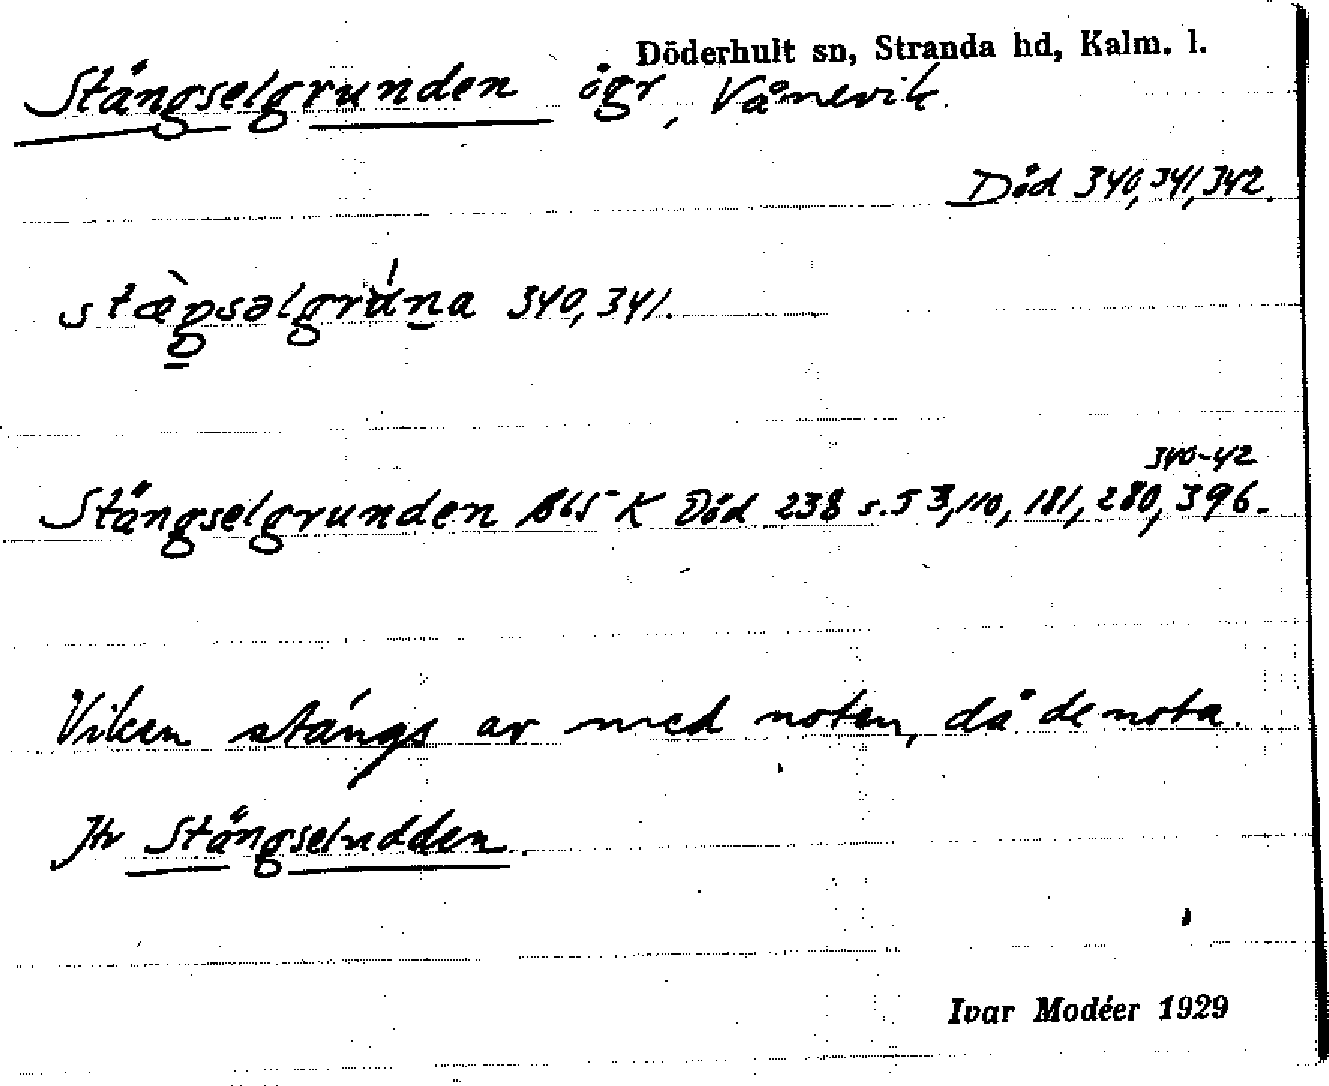 Döderhult sn, Stranda hd, Kalm. l.
Stängselgrunden ögr, Våmevik.
Död 340, 341, 342.
stæ̀ŋsəlgrúna 340, 341.
340-42
Stängselgrunden BLS K Död 238 s. 53, 110, 181, 280, 396.
Viken stängs av med noten, då de nota.
Jfr Stängseludden.
Ivar Modéer 1929